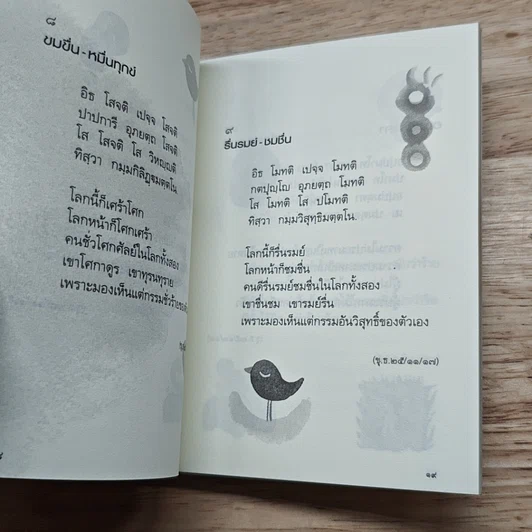 ๘
ขมขื่น - หมื่นทุกข์
อิธ โสจติ เปจฺจ โสจติ
ปาปการี อุภยตฺถ โสจติ
โส โสจติ โส วิหญฺติ
ทิสฺวา กมฺมกิลิฏฺฐมตฺตโน.
โลกนี้ก็เศร้าโศก
โลกหน้าก็โศกเศร้า
คนชั่วโศกศัลย์ในโลกทั้งสอง
เขาโศกาดูร เขาทุรนทุราย
เพราะมองเห็นแต่กรรมชั่วร้าย
๙
รื่นรมย์ - ชมชื่น
อิธ โมทติ เปจฺจ โมทติ
กตปุญฺโญ อุภยตฺถ โมทติ
โส โมทติ โส ปโมทติ
ทิสฺวา กมฺมวิสุทฺธิมตฺตโน.
โลกนี้ก็รื่นรมย์
โลกหน้าก็ชมชื่น
คนดีรื่นรมย์ชมชื่นในโลกทั้งสอง
เขาชื่นชม เขารมย์รื่น
เพราะมองเห็นแต่กรรมอันวิสุทธิ์ของตัวเอง
(ขุ.ธ.๒๕/๑๑/๑๗)
๑๙